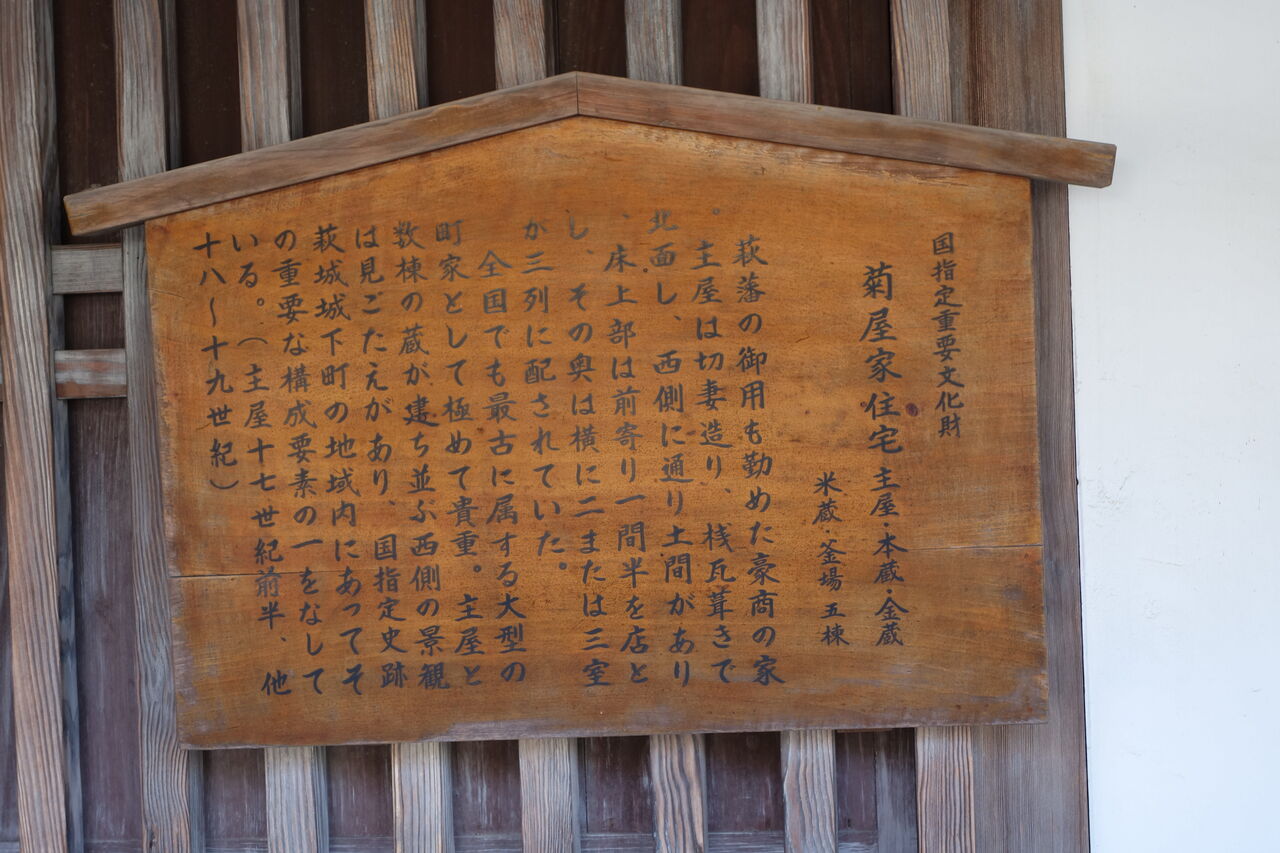 国指定重要文化財
菊屋家住宅 主屋・本蔵・金蔵
米蔵・釜場 五棟
萩藩の御用も勤めた豪商の家
。主屋は切妻造り、桟瓦葺きで
北面し、西側に通り土間があり
、床上部は前寄り一間半を店と
し、その奥は横に二または三室
が三列に配されていた。
全国でも最古に属する大型の
町家として極めて貴重。主屋と
数棟の蔵が建ち並ぶ西側の景観
は見ごたえがあり、国指定史跡
萩城城下町の地域内にあってそ
の重要な構成要素の一をなして
いる。（主屋十七世紀前半、他
十八〜十九世紀）